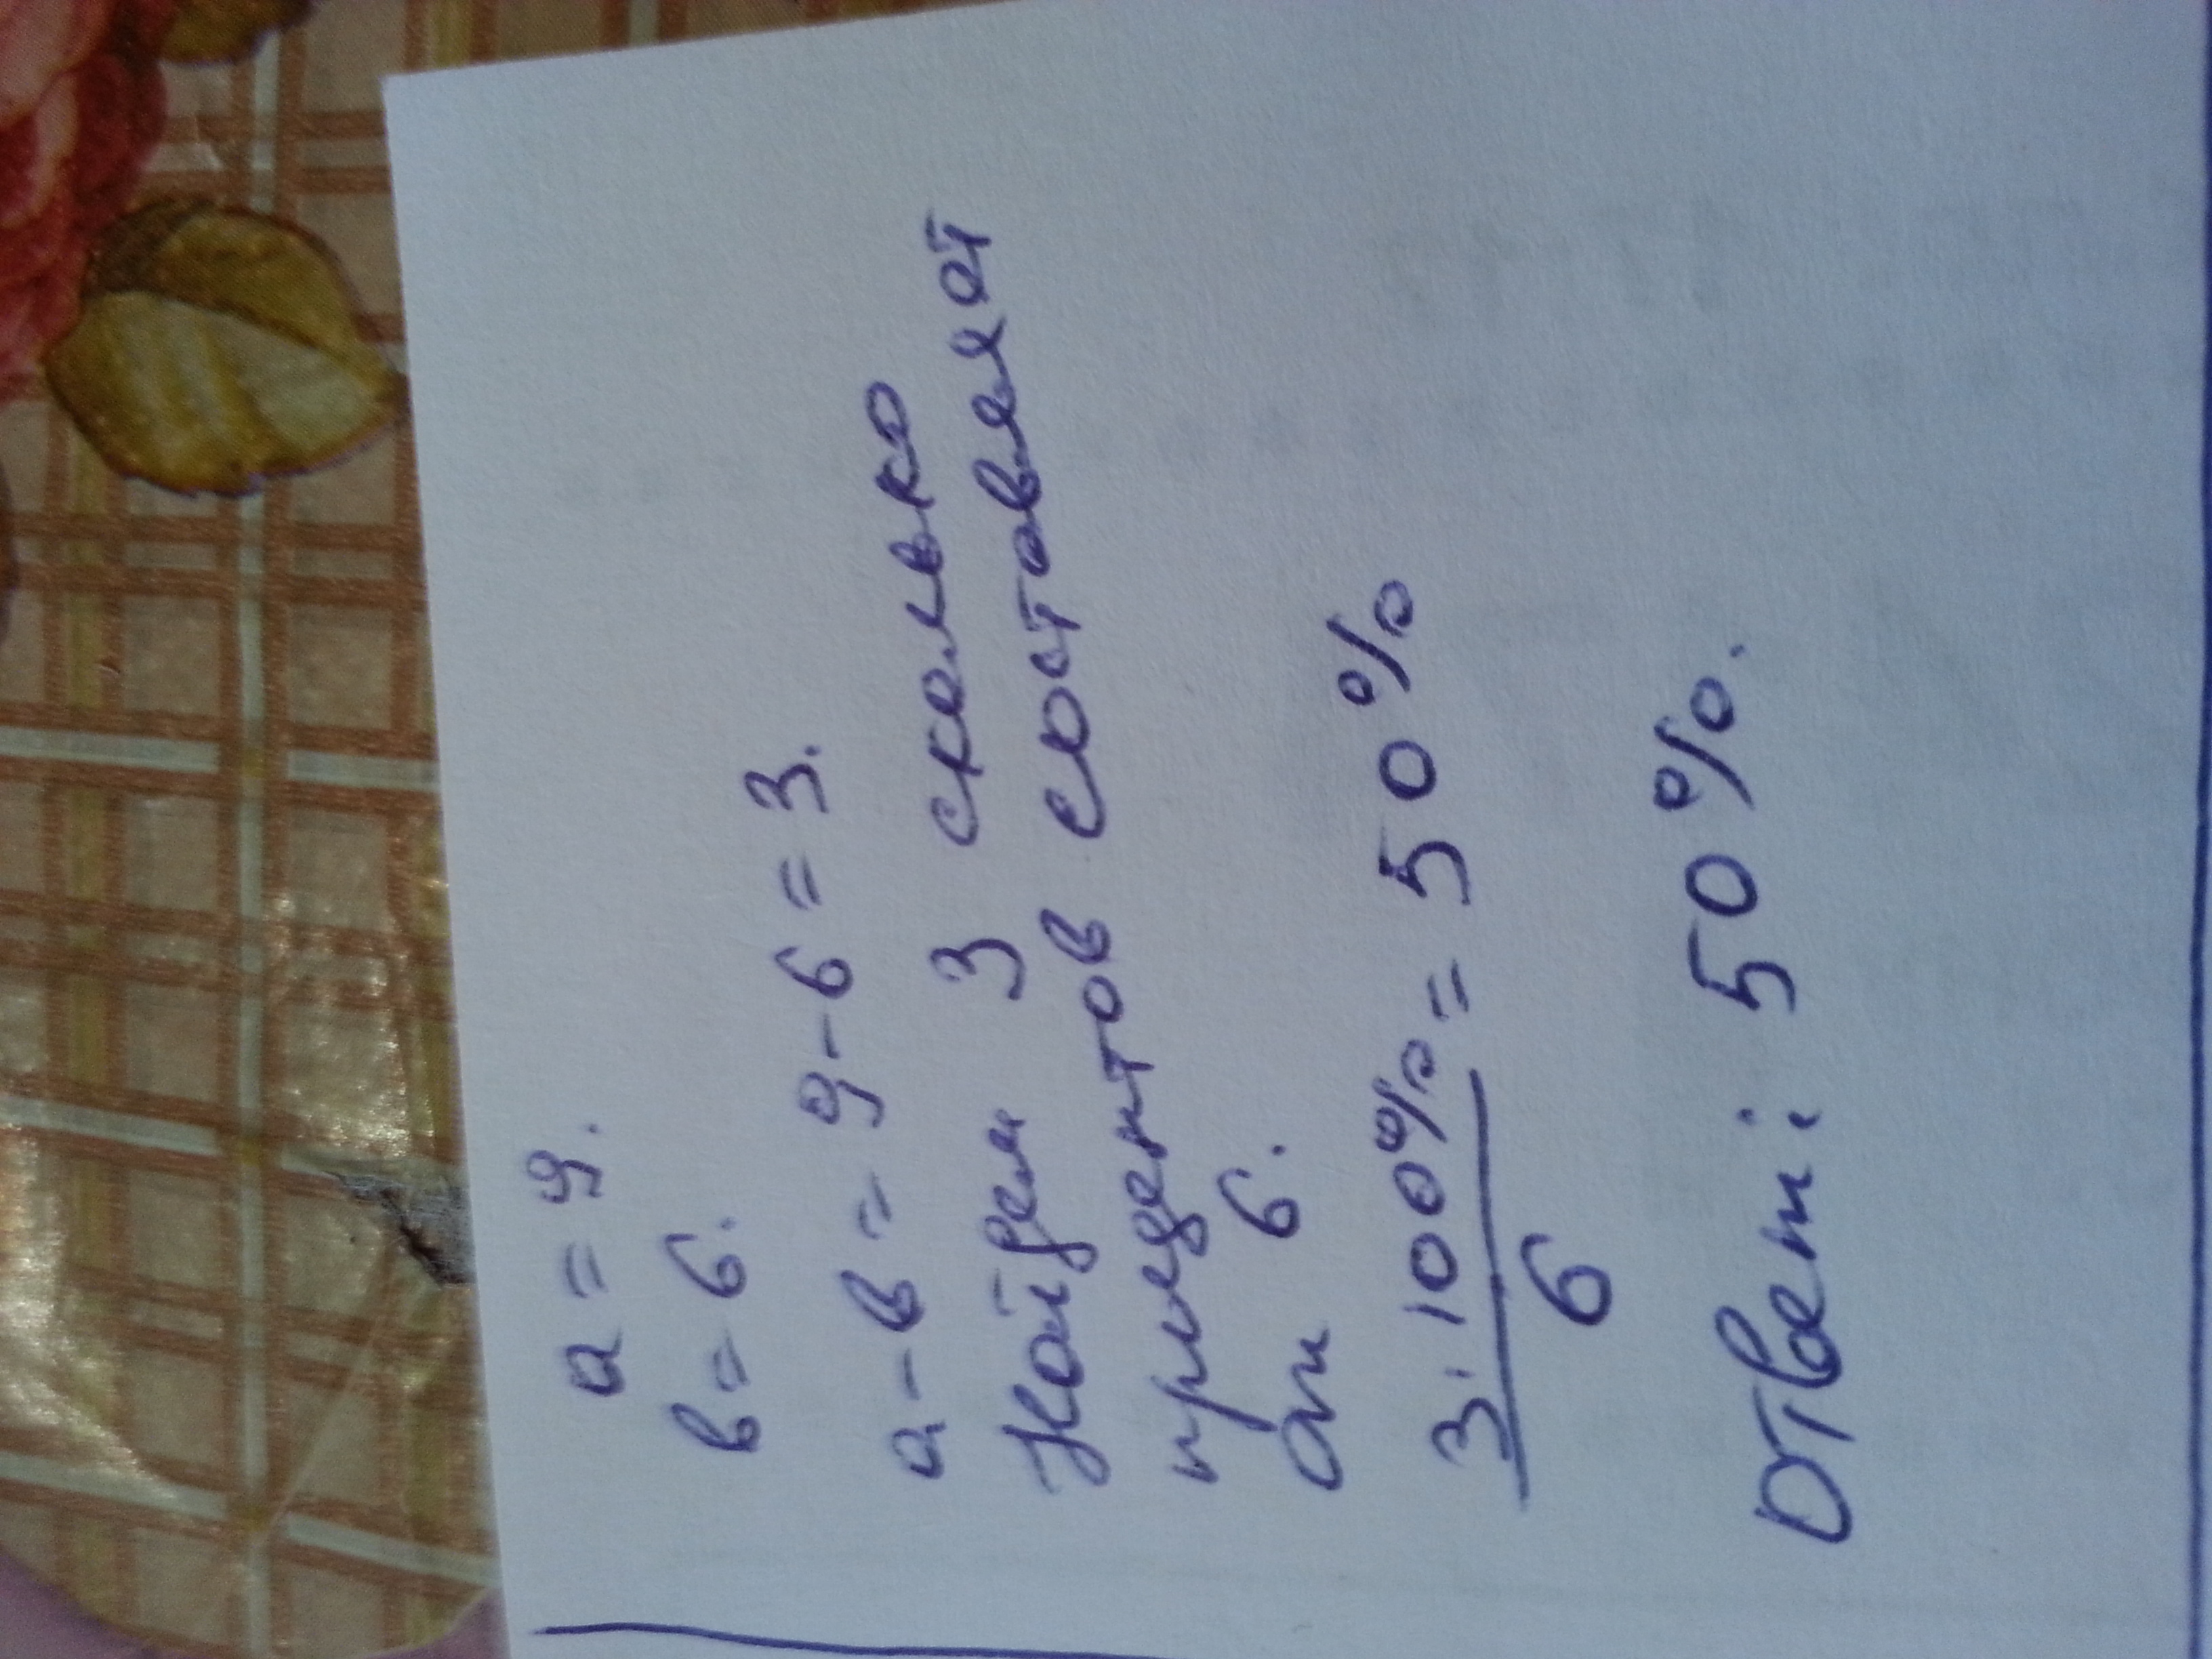 а = 9.
в = 6.
а - в = 9 - 6 = 3.
Найдем 3 сколько
процентов составляет
от 6.
3 · 100% = 50%
6
Ответ: 50%.